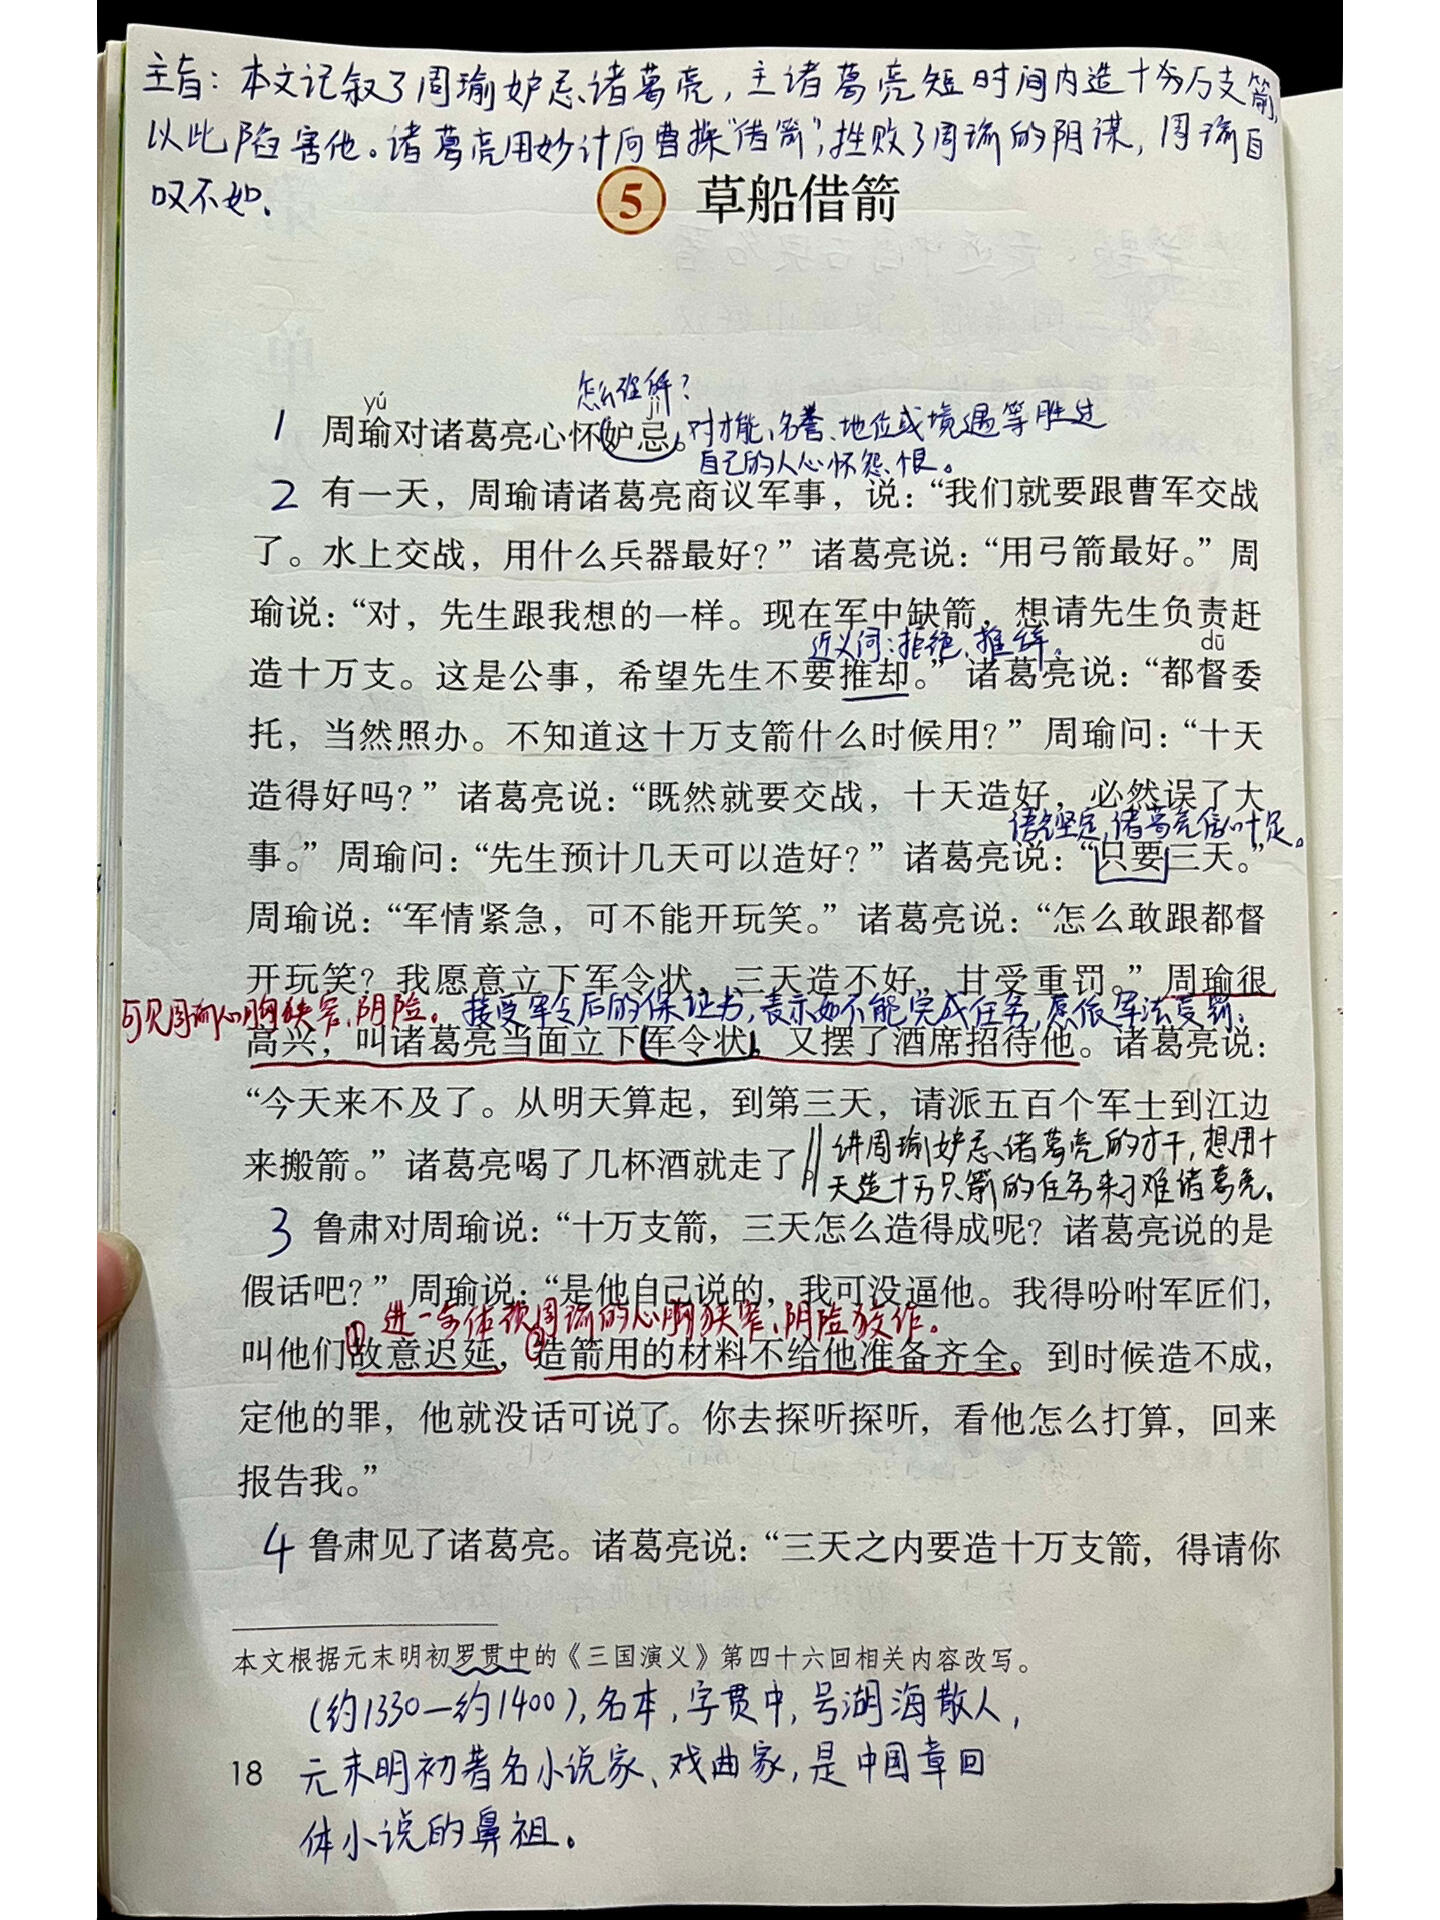 主旨：本文记叙了周瑜妒忌诸葛亮，主诸葛亮短时间内造十万支箭，
以此陷害他。诸葛亮用妙计向曹操“借箭”，挫败了周瑜的阴谋，周瑜自
叹不如。
5 草船借箭
怎么理解？
yú
jì
1 周瑜对诸葛亮心怀妒忌。对才能、名誉、地位或境遇等胜过
自己的人心怀怨恨。
2 有一天，周瑜请诸葛亮商议军事，说：“我们就要跟曹军交战
了。水上交战，用什么兵器最好？”诸葛亮说：“用弓箭最好。”周
瑜说：“对，先生跟我想的一样。现在军中缺箭，想请先生负责赶
近义词：拒绝、推辞。
dū
造十万支。这是公事，希望先生不要推却。”诸葛亮说：“都督委
托，当然照办。不知道这十万支箭什么时候用？”周瑜问：“十天
造得好吗？”诸葛亮说：“既然就要交战，十天造好，必然误了大
坚定，诸葛亮信心十足。
事。”周瑜问：“先生预计几天可以造好？”诸葛亮说：“只要三天。”
周瑜说：“军情紧急，可不能开玩笑。”诸葛亮说：“怎么敢跟都督
开玩笑？我愿意立下军令状，三天造不好，甘受重罚。”周瑜很
可见周瑜心胸狭窄、阴险。 接受军令后的保证书，表示如不能完成任务，愿依军法受罚。
高兴，叫诸葛亮当面立下军令状，又摆了酒席招待他。诸葛亮说：
“今天来不及了。从明天算起，到第三天，请派五百个军士到江边
来搬箭。”诸葛亮喝了几杯酒就走了。
讲周瑜妒忌诸葛亮的才干，想用十
天造十万只箭的任务来刁难诸葛亮。
3 鲁肃对周瑜说：“十万支箭，三天怎么造得成呢？诸葛亮说的是
假话吧？”周瑜说：“是他自己说的，我可没逼他。我得吩咐军匠们，
进一步体现周瑜的心胸狭窄、阴险狡诈。
叫他们①故意迟延，②造箭用的材料不给他准备齐全。到时候造不成，
定他的罪，他就没话可说了。你去探听探听，看他怎么打算，回来
报告我。”
4 鲁肃见了诸葛亮。诸葛亮说：“三天之内要造十万支箭，得请你
本文根据元末明初罗贯中的《三国演义》第四十六回相关内容改写。
（约1330—约1400），名本，字贯中，号湖海散人，
18 元末明初著名小说家、戏曲家，是中国章回
体小说的鼻祖。